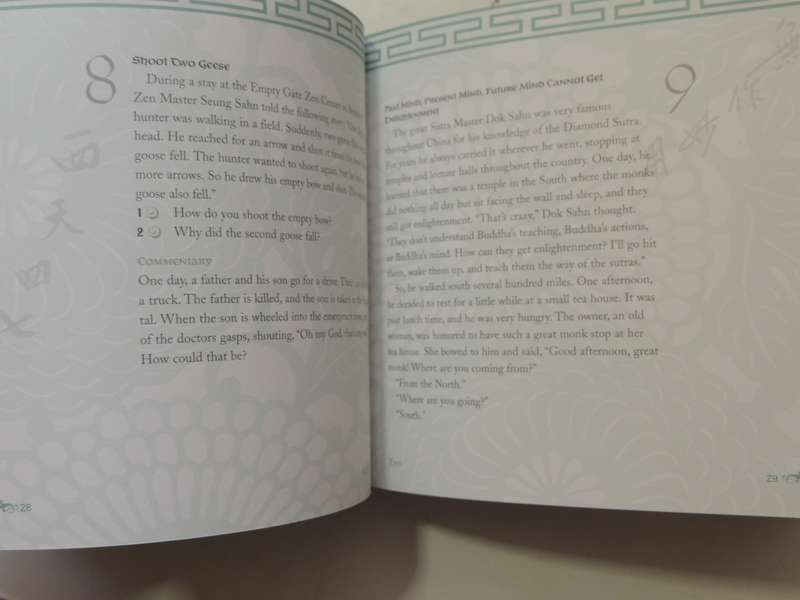 8
Shoot Two Geese
During a stay at the Empty Gate Zen Center in
Zen Master Seung Sahn told the following story:
hunter was walking in a field. Suddenly, two geese
head. He reached for an arrow and shot it from his bow.
goose fell. The hunter wanted to shoot again, but he had no
more arrows. So he drew his empty bow and shot. The second
goose also fell.”
1 How do you shoot the empty bow?
2 Why did the second goose fall?
Commentary
One day, a father and his son go for a drive. They
a truck. The father is killed, and the son is taken to the
tal. When the son is wheeled into the emergency room,
of the doctors gasps, shouting, “Oh my God, that's my
How could that be?
西
天
四
七
28
9
Past Mind, Present Mind, Future Mind Cannot Get
Enlightenment
The great Sutra Master Dok Sahn was very famous
throughout China for his knowledge of the Diamond Sutra.
For years he always carried it wherever he went, stopping at
temples and lecture halls throughout the country. One day, he
learned that there was a temple in the South where the monks
did nothing all day but sit facing the wall and sleep, and they
still got enlightenment. “That's crazy,” Dok Sahn thought.
“They don't understand Buddha's teaching, Buddha's actions,
or Buddha's mind. How can they get enlightenment? I'll go hit
them, wake them up, and teach them the way of the sutras.”
So, he walked south several hundred miles. One afternoon,
he decided to rest for a little while at a small tea house. It was
past lunch time, and he was very hungry. The owner, an old
woman, was honored to have such a great monk stop at her
tea house. She bowed to him and said, “Good afternoon, great
monk! Where are you coming from?”
“From the North.”
“Where are you going?”
“South.”
29